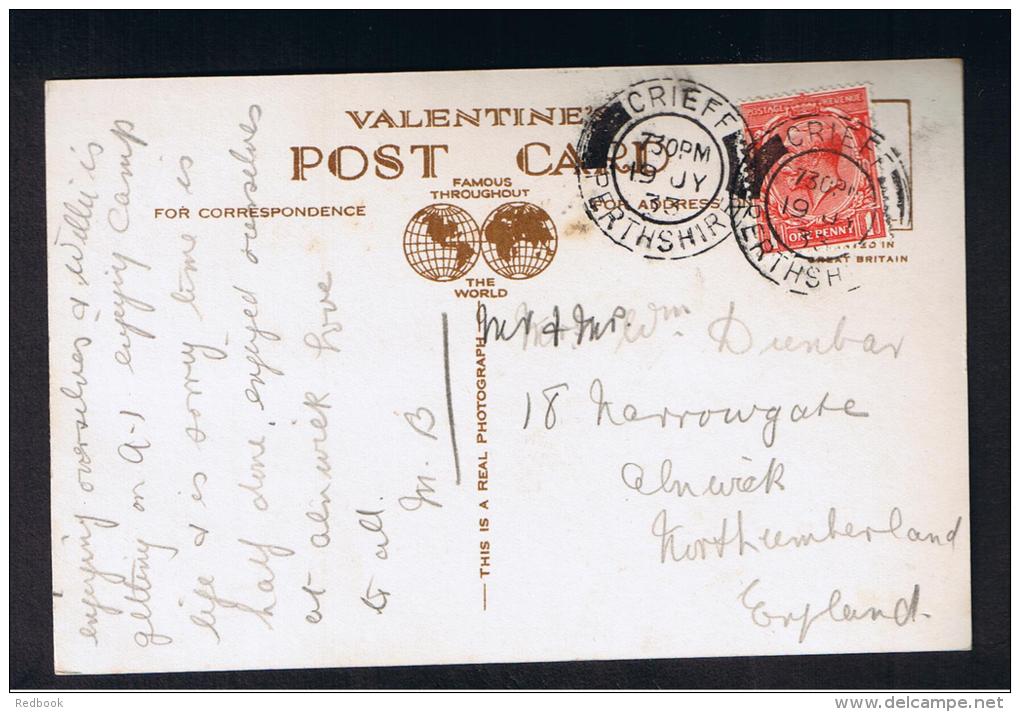 VALENTINE'S
POST CARD
FAMOUS
THROUGHOUT
THE
WORLD
FOR CORRESPONDENCE
FOR ADDRESS
THIS IS A REAL PHOTOGRAPH
CRIEFF
7.30PM
19 JY
PERTHSHIRE
POSTAGE REVENUE
ONE PENNY
CRIEFF
7.30PM
19 JY
PERTHSHIRE
PRINTED IN
GREAT BRITAIN
enjoying ourselves & Willie is
getting on A-1 enjoying Camp
life & is sorry time is
half done, enjoyed ourselves
at alinwick love
to all.
M. B
Mr & Mrs. Wm Dunbar
18 Narrowgate
Alnwick
Northumberland
England.
Redbook
www.delcampe.net